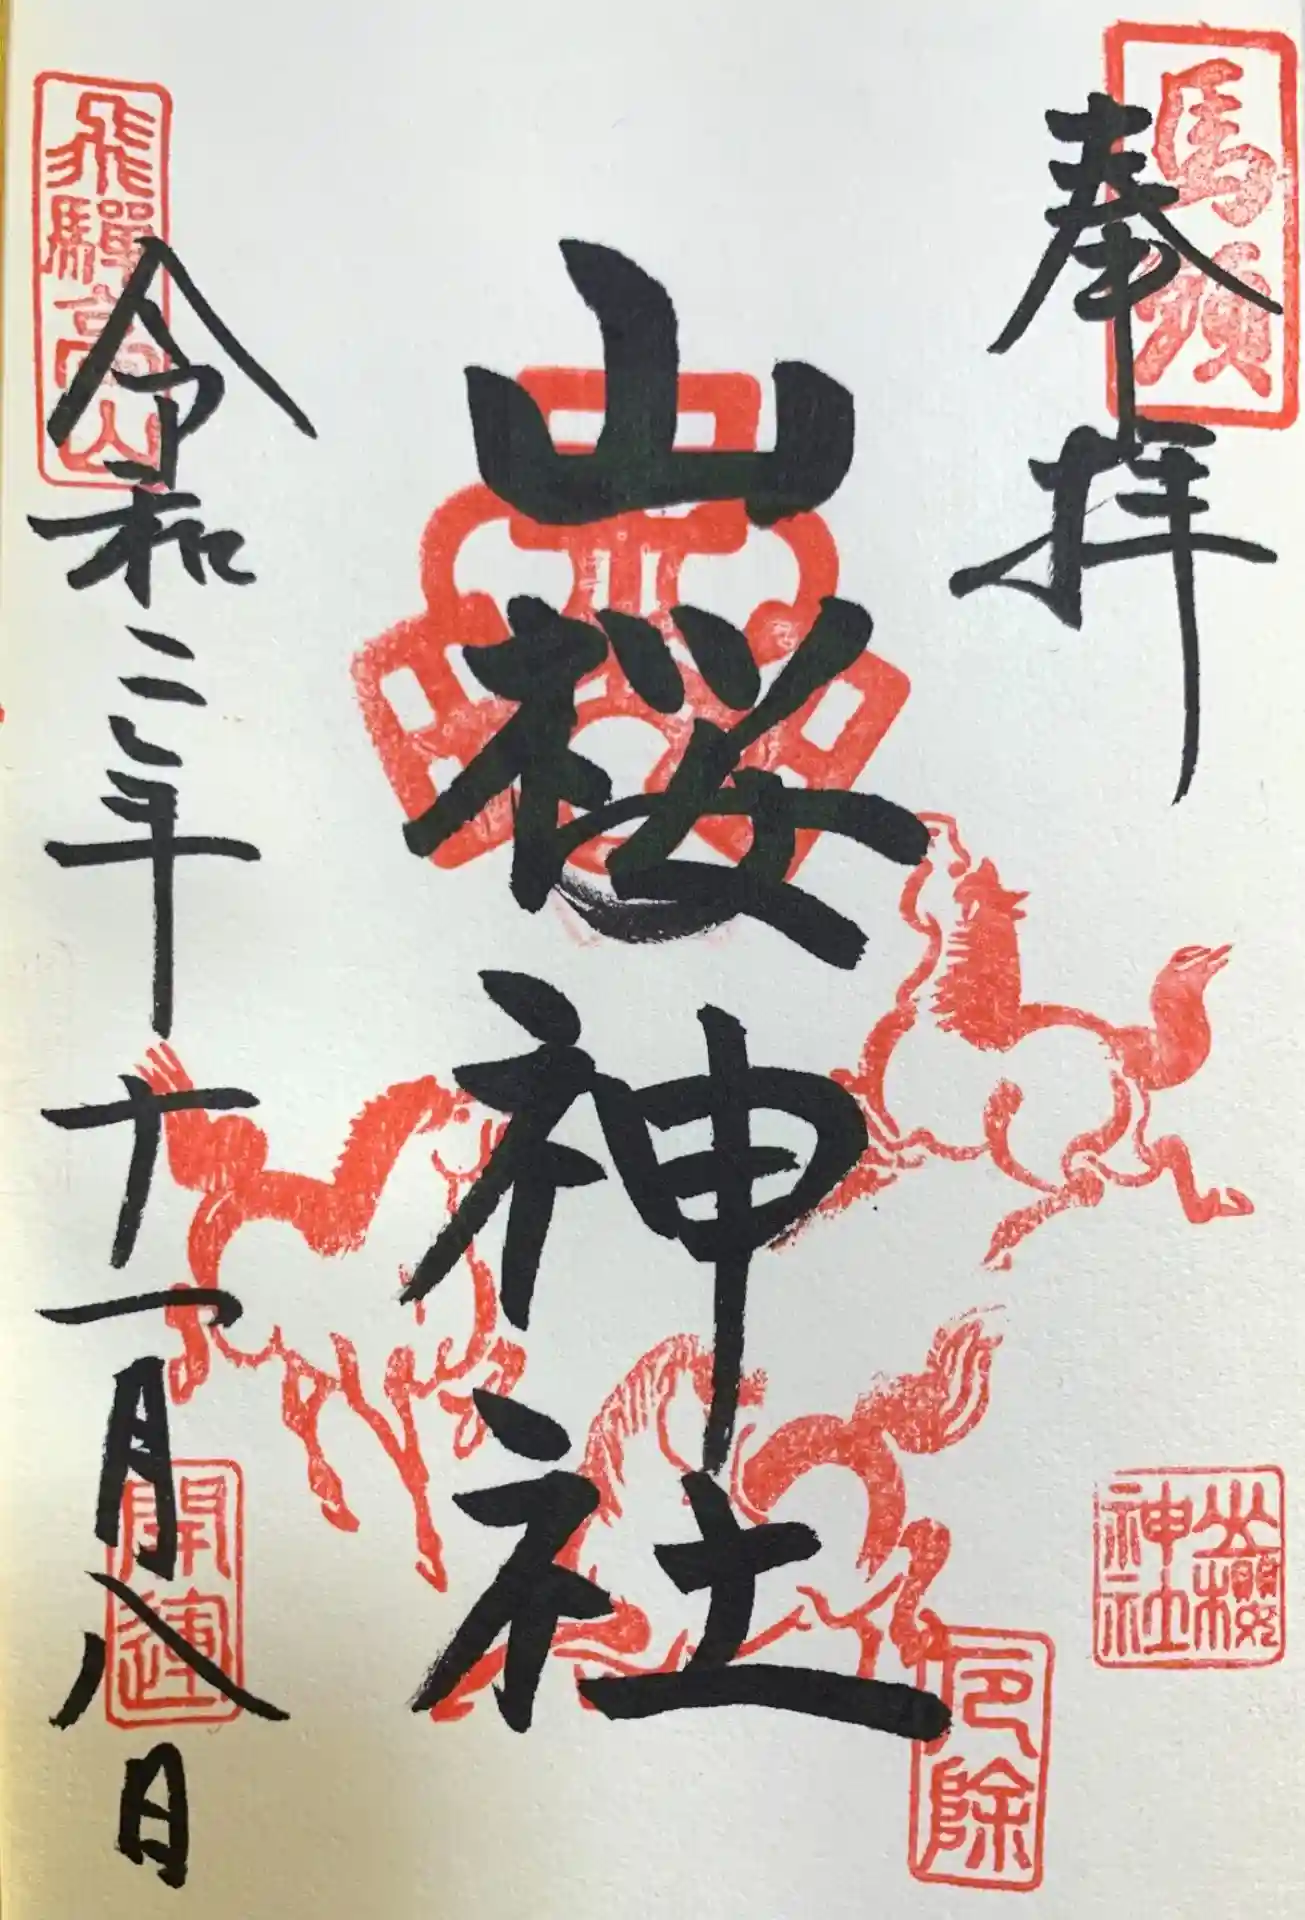 馬頭
奉拝
山櫻神社
山桜神社
厄除
飛騨高山
令和二年十一月八日
開運